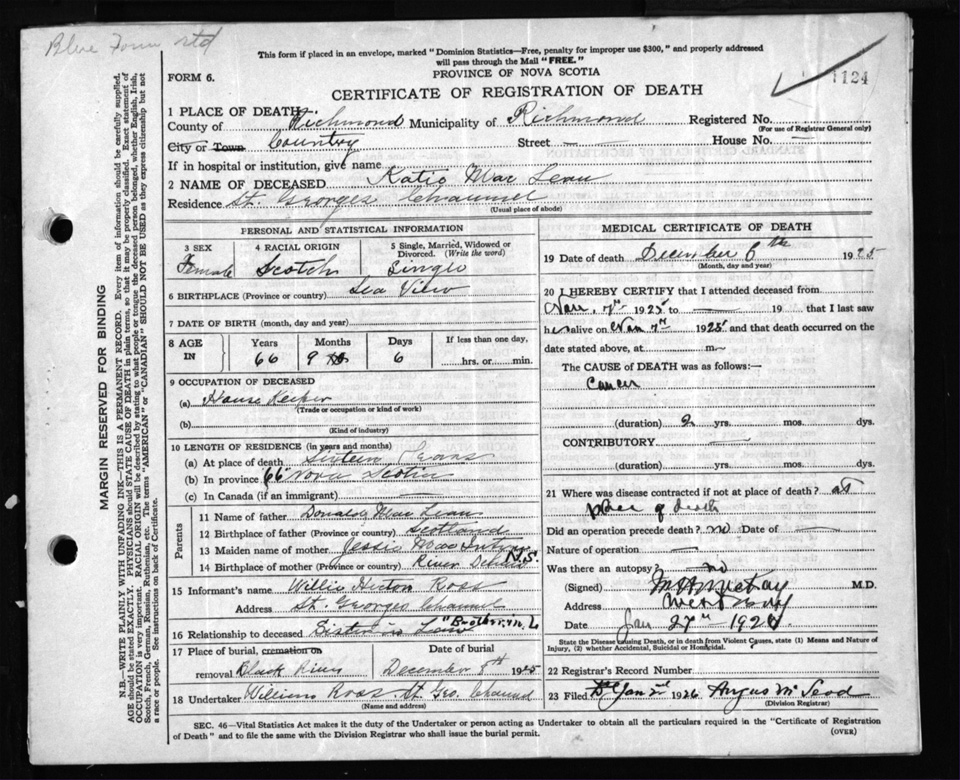 Blue Form std
This form if placed in an envelope, marked "Dominion Statistics—Free, penalty for improper use $300," and properly addressed
will pass through the Mail "FREE."
PROVINCE OF NOVA SCOTIA
FORM 6.
1124
CERTIFICATE OF REGISTRATION OF DEATH
1 PLACE OF DEATH—
County of Richmond Municipality of Richmond Registered No.
(For use of Registrar General only)
City or Town Country Street — House No. —
If in hospital or institution, give name
2 NAME OF DECEASED Katie Mac Lean
Residence St. Georges Channel
(Usual place of abode)
PERSONAL AND STATISTICAL INFORMATION
3 SEX 4 RACIAL ORIGIN 5 Single, Married, Widowed or
Divorced. (Write the word)
Female Scotch Single
6 BIRTHPLACE (Province or country) Sea View
7 DATE OF BIRTH (month, day and year)
8 AGE IN Years Months Days If less than one day,
66 9 6 hrs. or min.
9 OCCUPATION OF DECEASED
(a) House Keeper
(Trade or occupation or kind of work)
(b)
(Kind of industry)
10 LENGTH OF RESIDENCE (in years and months)
(a) At place of death Sixteen Years
(b) In province 66 Nova Scotia
(c) In Canada (if an immigrant) —
Parents
11 Name of father Donald Mac Lean
12 Birthplace of father (Province or country) Scotland
13 Maiden name of mother Jessie
14 Birthplace of mother (Province or country) River N.S.
15 Informant's name Willie Ross
Address St. Georges Channel
16 Relationship to deceased Sister in Law "Brother in L.
17 Place of burial, cremation or Date of burial
removal Black River December 8th 1925
18 Undertaker William Ross St. Geo. Channel
(Name and address)
MEDICAL CERTIFICATE OF DEATH
19 Date of death December 6th 1925
(Month, day and year)
20 I HEREBY CERTIFY that I attended deceased from
Nov. 7th 1925 to — 19 that I last saw
her alive on Nov 7th 1925 and that death occurred on the
date stated above, at m—
The CAUSE of DEATH was as follows:—
Cancer
(duration) 2 yrs. mos. dys.
CONTRIBUTORY —
(duration) yrs. mos. dys.
21 Where was disease contracted if not at place of death? at
place of death
Did an operation precede death? no Date of —
Nature of operation —
Was there an autopsy? no
(Signed) McKay M.D.
Address West Bay
Date Jan 27th 1926
State the Disease causing Death, or in death from Violent Causes, state (1) Means and Nature of
Injury, (2) whether Accidental, Suicidal or Homicidal.
22 Registrar's Record Number
23 Filed Jan 2nd 1926 Angus McLeod
(Division Registrar)
SEC. 46—Vital Statistics Act makes it the duty of the Undertaker or person acting as Undertaker to obtain all the particulars required in the "Certificate of Registration
of Death" and to file the same with the Division Registrar who shall issue the burial permit.
(OVER)
MARGIN RESERVED FOR BINDING
N.B.—WRITE PLAINLY WITH UNFADING INK—THIS IS A PERMANENT RECORD. Every item of information should be carefully supplied.
AGE should be stated EXACTLY. PHYSICIANS should STATE CAUSE OF DEATH in plain terms, so that it may be properly classified. Exact statement of
OCCUPATION is very important. RACIAL ORIGIN will be described by stating to what people or tongue the deceased person belonged, whether English, Irish,
Scotch, French, German, Russian, Ruthenian, etc. The terms "AMERICAN" or "CANADIAN" SHOULD NOT BE USED as they express citizenship but not
a race or people. See instructions on back of Certificate.